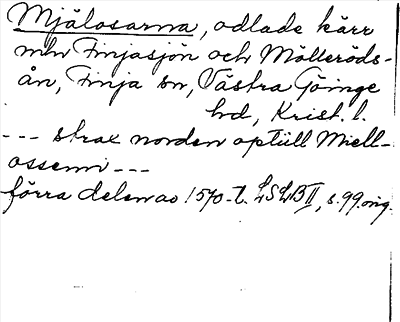 Mjälosarna, odlade kärr
mln Finjasjön och Mölleröds-
ån, Finja sn, Västra Göinge
hd, Krist. l.
--- strax norden optüll Miell-
ossemi ---
förra delen av 1570-t. LSLB II, s. 99. orig.